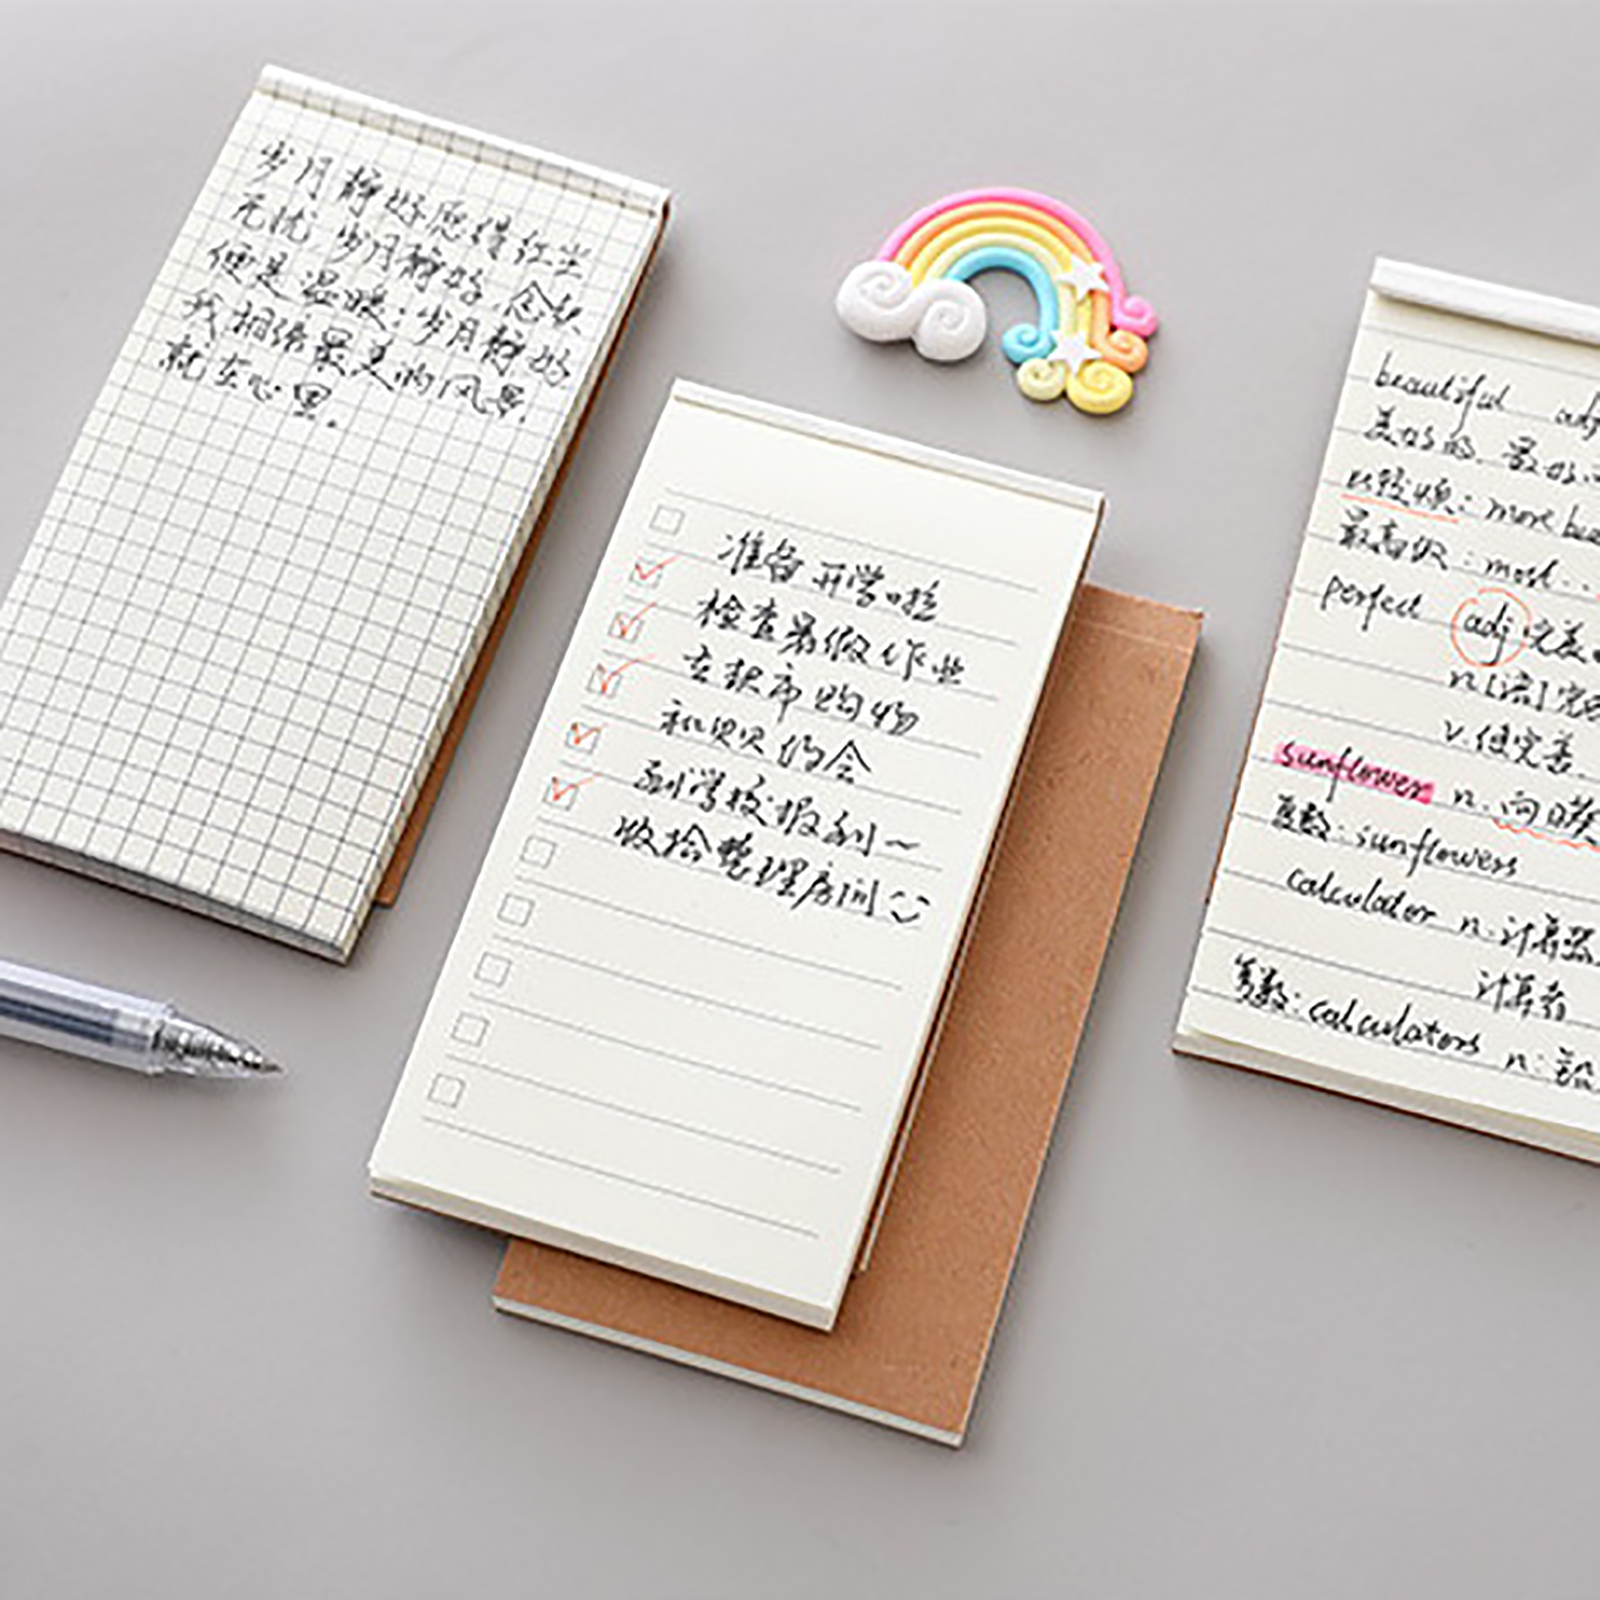 岁月静好愿得红尘
无忧,岁月静好,念执
便是温暖;岁月静好
我相信最美的风景,
就在心里。
准备开学啦
检查暑假作业
去超市购物
和贝贝约会
到学校报到~
收拾整理房间
beautiful adj
美好的,最好
比较级:more beau
最高级:most...
perfect adj.完美
n.[语]完
v.使完善.
sunflower n.向日葵
复数:sunflowers
calculator n.计算器
计算者
复数:calculators n: